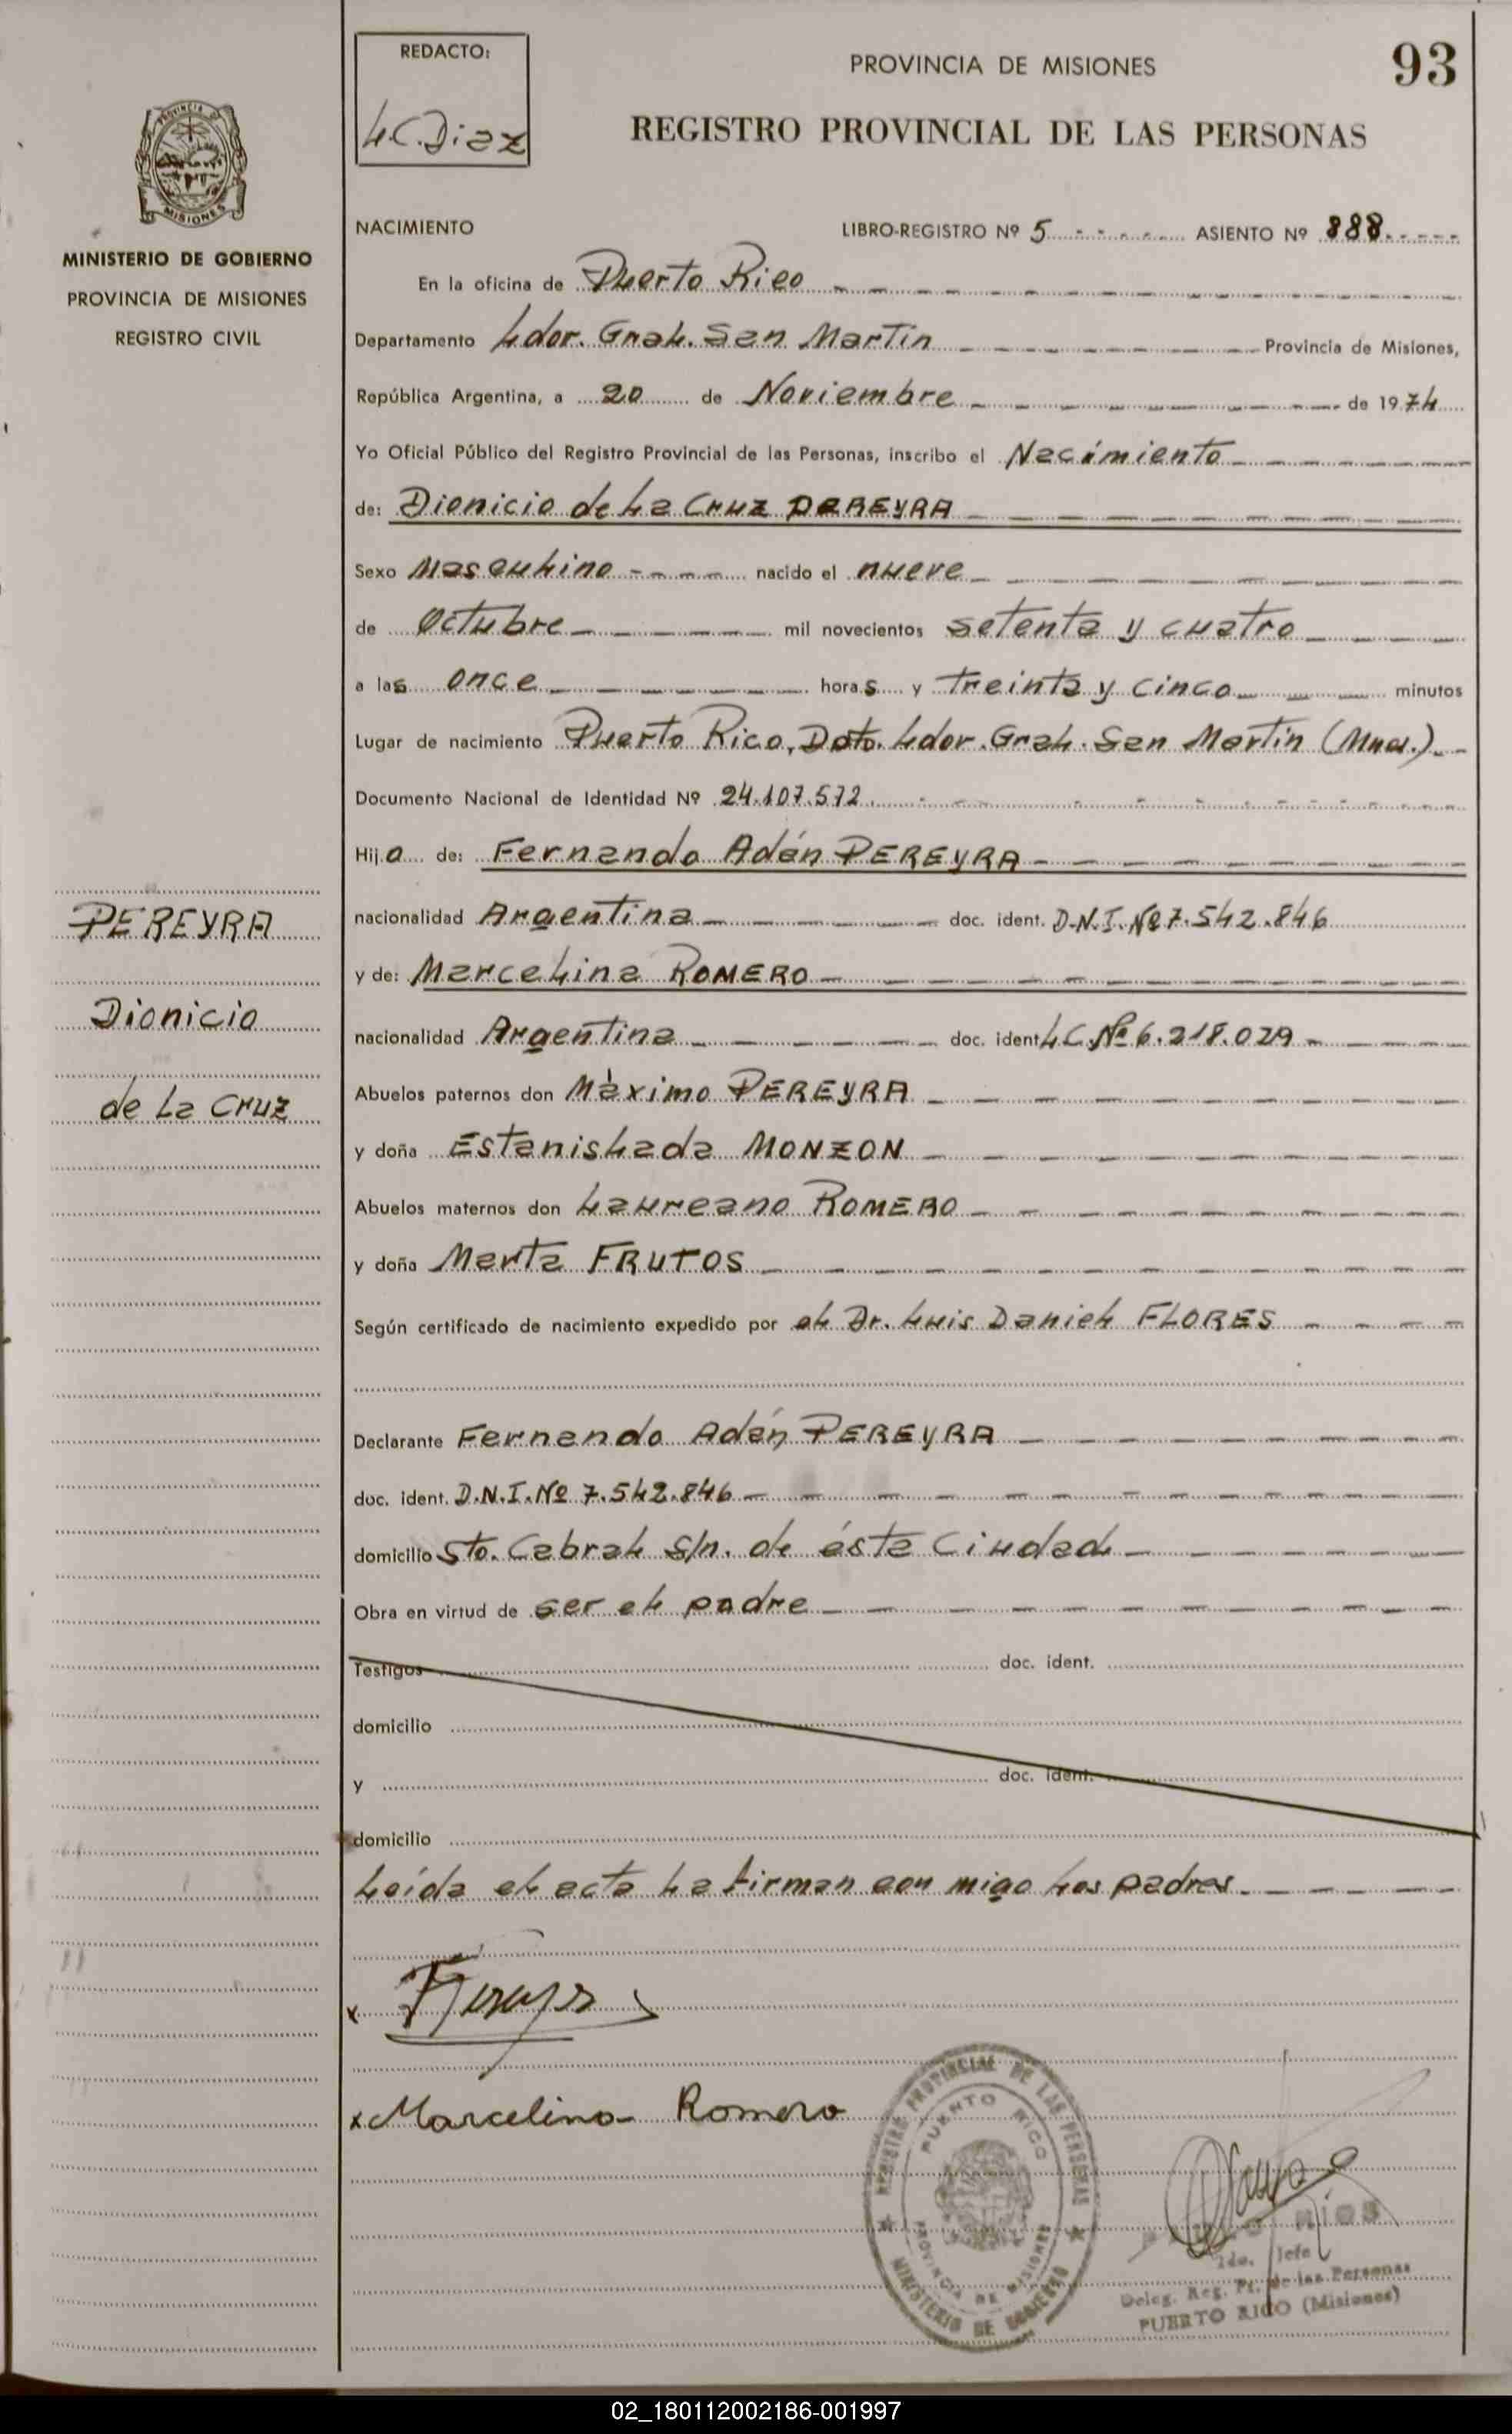 93
REDACTO:
L.C. Diaz
PROVINCIA DE MISIONES
REGISTRO PROVINCIAL DE LAS PERSONAS
PROVINCIA DE MISIONES
MINISTERIO DE GOBIERNO
PROVINCIA DE MISIONES
REGISTRO CIVIL
NACIMIENTO LIBRO-REGISTRO Nº 5 ASIENTO Nº 888
En la oficina de Puerto Rico
Departamento Ldor. Gral. San Martin Provincia de Misiones,
República Argentina, a 20 de Noviembre de 1974
Yo Oficial Público del Registro Provincial de las Personas, inscribo el Nacimiento
de: Dionicio de La Cruz PEREYRA
Sexo Masculino nacido el nueve
de Octubre mil novecientos setenta y cuatro
a las once horas y treinta y cinco minutos
Lugar de nacimiento Puerto Rico, Dpto. Ldor. Gral. San Martin (Mnes.)
Documento Nacional de Identidad Nº 24.107.572
Hijo de: Fernando Adán PEREYRA
nacionalidad Argentina doc. ident. D.N.I. Nº 7.542.846
y de: Marcelina ROMERO
nacionalidad Argentina doc. ident L.C. Nº 6.218.029
Abuelos paternos don Màximo PEREYRA
y doña Estanislada MONZON
Abuelos maternos don Laureano ROMERO
y doña Marta FRUTOS
Según certificado de nacimiento expedido por el Dr. Luis Daniel FLORES
Declarante Fernando Adán PEREYRA
doc. ident. D.N.I. Nº 7.542.846
domicilio Sto. Cabral S/n. de ésta Ciudad
Obra en virtud de ser el padre
Testigos doc. ident.
domicilio
y doc. ident.
domicilio
Leída el acta La firman con migo Los padres
PEREYRA
Dionicio
de La Cruz
x
x Marcelina Romero
REGISTRO PROVINCIAL DE LAS PERSONAS
PUERTO RICO
PROVINCIA DE MISIONES
MINISTERIO DE GOBIERNO
RIOS
2do. Jefe
Deleg. Reg. Pr. de las Personas
PUERTO RICO (Misiones)
02_180112002186-001997